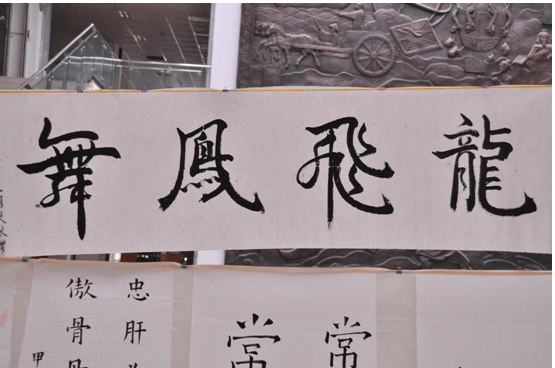 龍飛鳳舞
忠肝
傲骨
甲
常
常